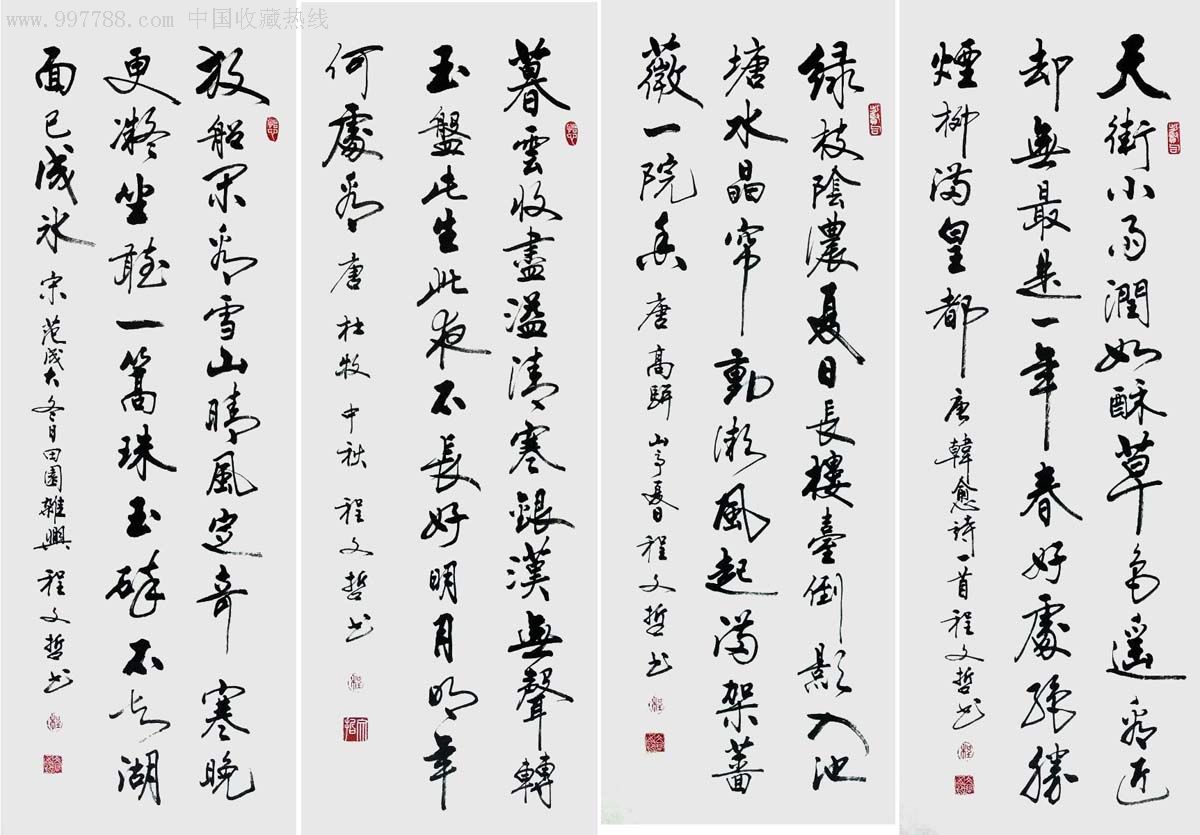 www.997788.com 中国收藏热线
天街小雨潤如酥草色遥看近
却無最是一年春好處絕勝
煙柳滿皇都 唐韓愈詩一首程文哲书
绿枝陰濃夏日長樓臺倒影入池
塘水晶帘動微風起滿架薔
薇一院香 唐高駢山亭夏日程文哲书
暮雲收盡溢清寒銀漢無聲轉
玉盤此生此夜不長好明月明年
何處看 唐杜牧中秋 程文哲书
放船闲看雪山晴風定奇寒晚
更凝坐聽一篙珠玉碎不知湖
面已成冰 宋范成大冬日田園雜興 程文哲书